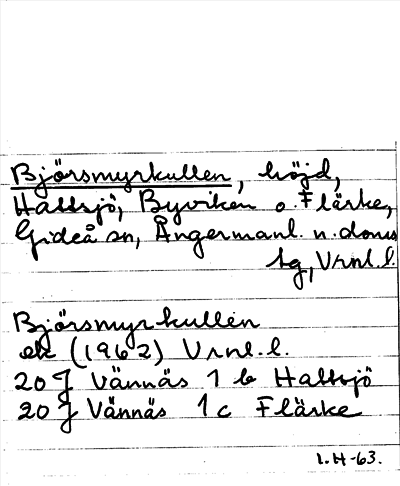 Björsmyrkullen, höjd,
Hallsjö, Byviken o. Flärke,
Gideå sn, Ångermanl. n. doms
tg, Vrnl. l.
Björsmyrkullen
ek (1962) Vrnl. l.
20 J Vännäs 1 b Hallsjö
20 J Vännäs 1c Flärke
I.H-63.